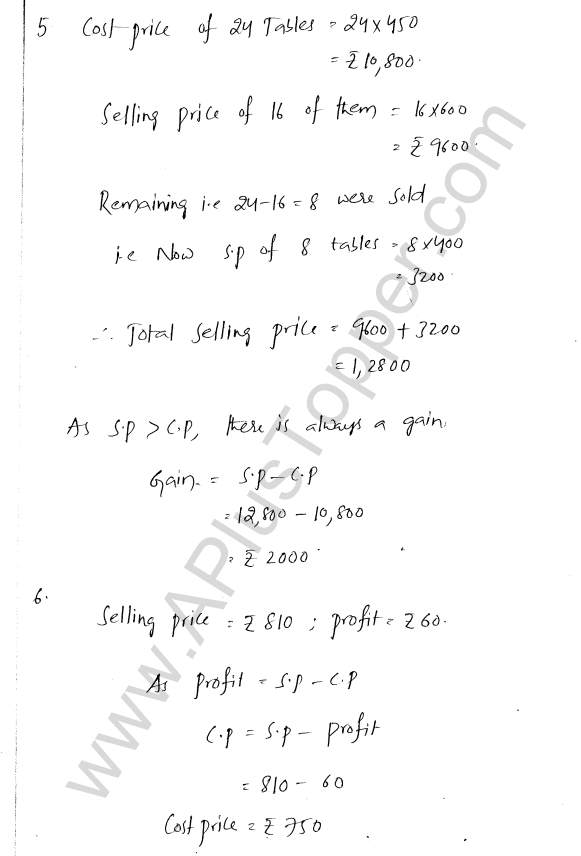 5 Cost price of 24 Tables = 24x450
= ₹10,800.
Selling price of 16 of them = 16x600
= ₹ 9600.
Remaining i.e 24-16 = 8 were sold
i.e Now s.p of 8 tables = 8x400
= 3200.
∴ Total selling price = 9600 + 3200
= 1,2800
As S.p > C.p, there is always a gain.
Gain = S.p - C.p
= 12,800 - 10,800
= ₹ 2000
6.
Selling price = ₹ 810 ; profit = ₹ 60.
As profit = S.p - C.p
C.p = S.p - profit
= 810 - 60
Cost price = ₹ 750
www.APlusTopper.com